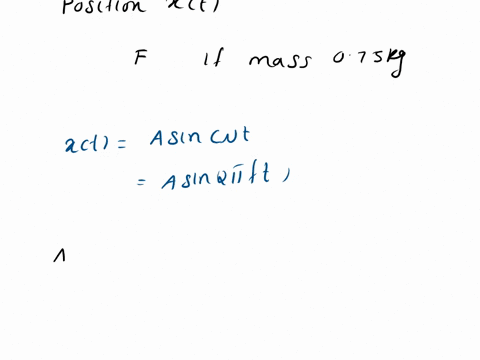 Position x(t)
F If mass 0.75kg
x(t) = A sin ωt
= A sin 2πft,